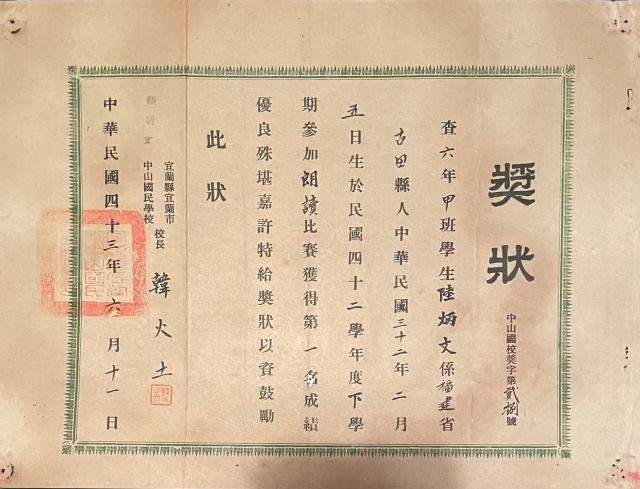 獎狀
中山國校獎字第貳捌號
查六年甲班學生陸炳文係福建省
古田縣人中華民國三十二年二月
五日生於民國四十二學年度下學
期參加朗讀比賽獲得第一名成績
優良殊堪嘉許特給獎狀以資鼓勵
此狀
宜蘭縣宜蘭市
中山國民學校
校長 韓火土
中華民國四十三年六月十一日